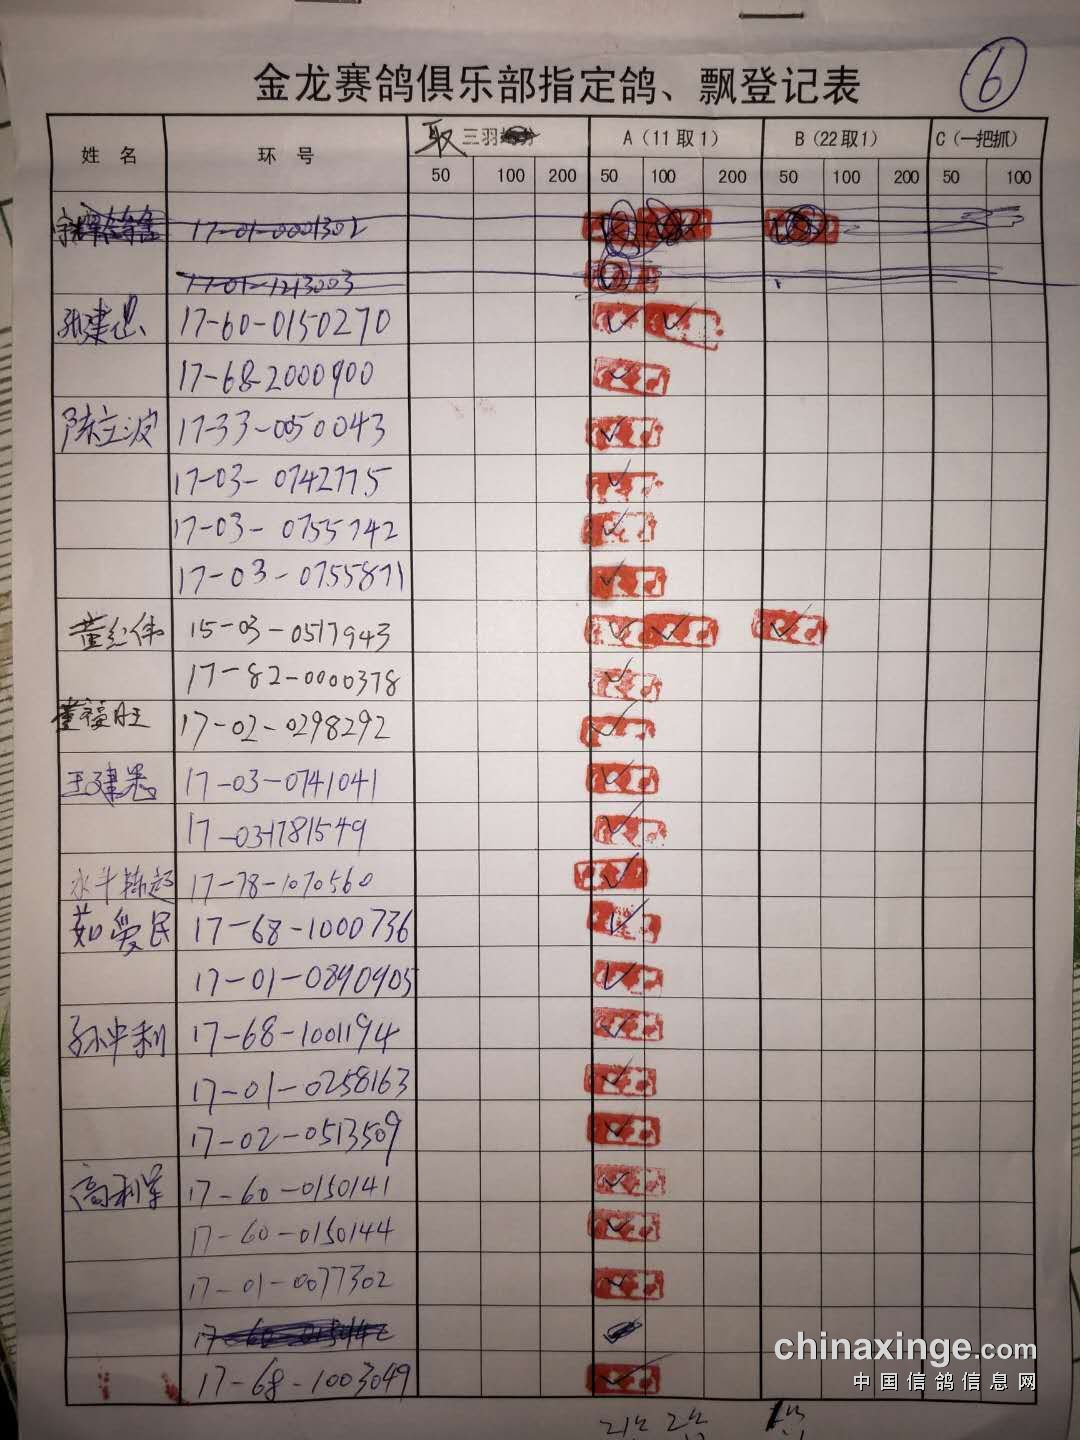 金龙赛鸽俱乐部指定鸽、飘登记表 6
姓 名 环 号 取 三羽 A（11取1） B（22取1） C（一把抓）
50 100 200 50 100 200 50 100 200 50 100
17-01-0001302
17-01-1213003
张建忠 17-60-0150270
17-68-2000900
陈立波 17-33-0050043
17-03-0742775
17-03-0755742
17-03-0755871
董红伟 15-03-0517943
17-82-0000378
董福旺 17-02-0298292
王建忠 17-03-0741041
17-03-1781549
17-78-1070560
茹爱民 17-68-1000736
17-01-0890905
孙中利 17-68-1001194
17-01-0258163
17-02-0513509
高利军 17-60-0150141
17-60-0150144
17-01-0077302
17-68-1003049
chinaxinge.com
中国信鸽信息网